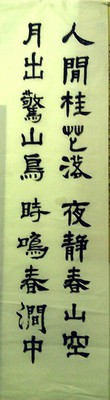 人閒桂花落夜靜春山空
月出驚山鳥時鳴春澗中